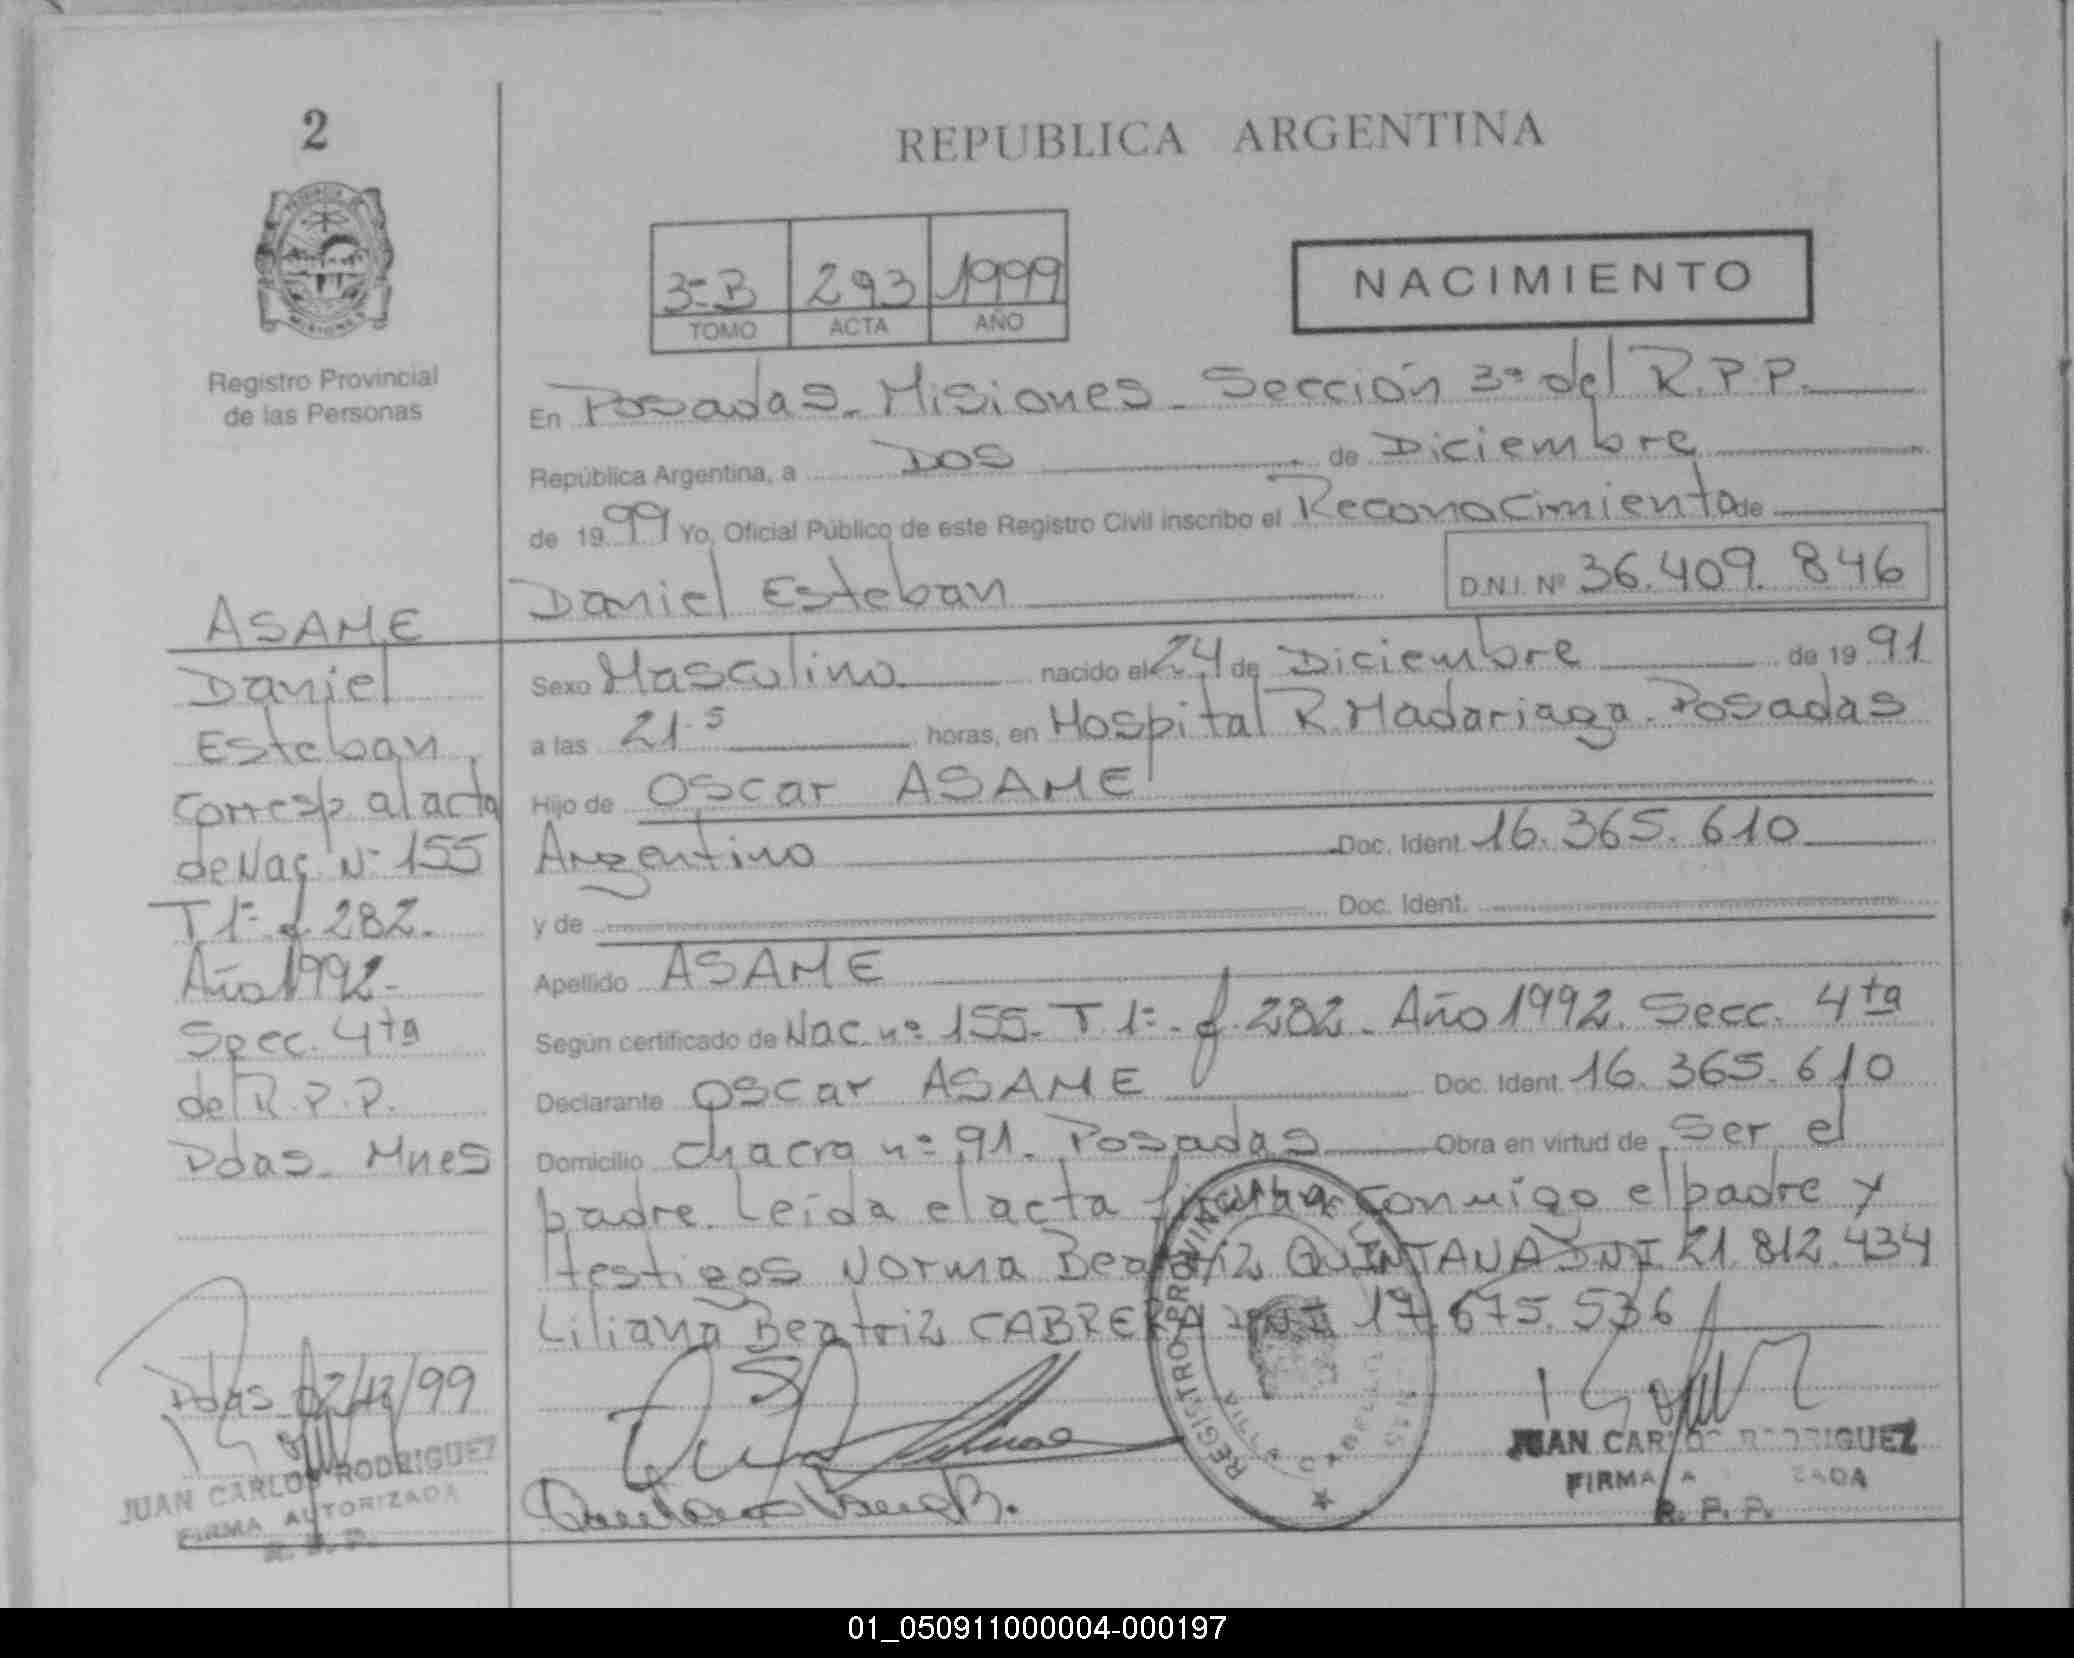 2
REPUBLICA ARGENTINA
3ª B 293 1999
TOMO ACTA AÑO
NACIMIENTO
Registro Provincial
de las Personas
En Posadas. Misiones. Sección 3ª del R.P.P.
República Argentina, a Dos de Diciembre
de 1999 Yo, Oficial Público de este Registro Civil inscribo el Reconocimiento de
Daniel Esteban D.N.I. Nº 36.409.846
ASAME
Daniel
Esteban
Corresp al acta
de Nac. Nº 155
T 1º f. 282.
Año 1992-
Secc. 4ta
del R.P.P.
Pdas. Mnes
Sexo Masculino nacido el 24 de Diciembre de 19 91
a las 21.5 horas, en Hospital R. Madariaga. Posadas
Hijo de Oscar ASAME
Argentino Doc. Ident. 16.365.610
y de Doc. Ident.
Apellido ASAME
Según certificado de Nac. nº 155. T. 1º. f. 282. Año 1992. Secc. 4ta
Declarante Oscar ASAME Doc. Ident. 16.365.610
Domicilio Chacra nº 91. Posadas Obra en virtud de Ser el
padre. Leída el acta firman conmigo el padre y
testigos Norma Beatriz QUINTANA DNI 21.812.434
Liliana Beatriz CABRERA DNI 17.675.536
Pdas 02/12/99
JUAN CARLOS RODRIGUEZ
FIRMA AUTORIZADA
R. P. P.
REGISTRO PROVINCIAL
JUAN CARLOS RODRIGUEZ
FIRMA AUTORIZADA
R. P. P.
01_050911000004-000197